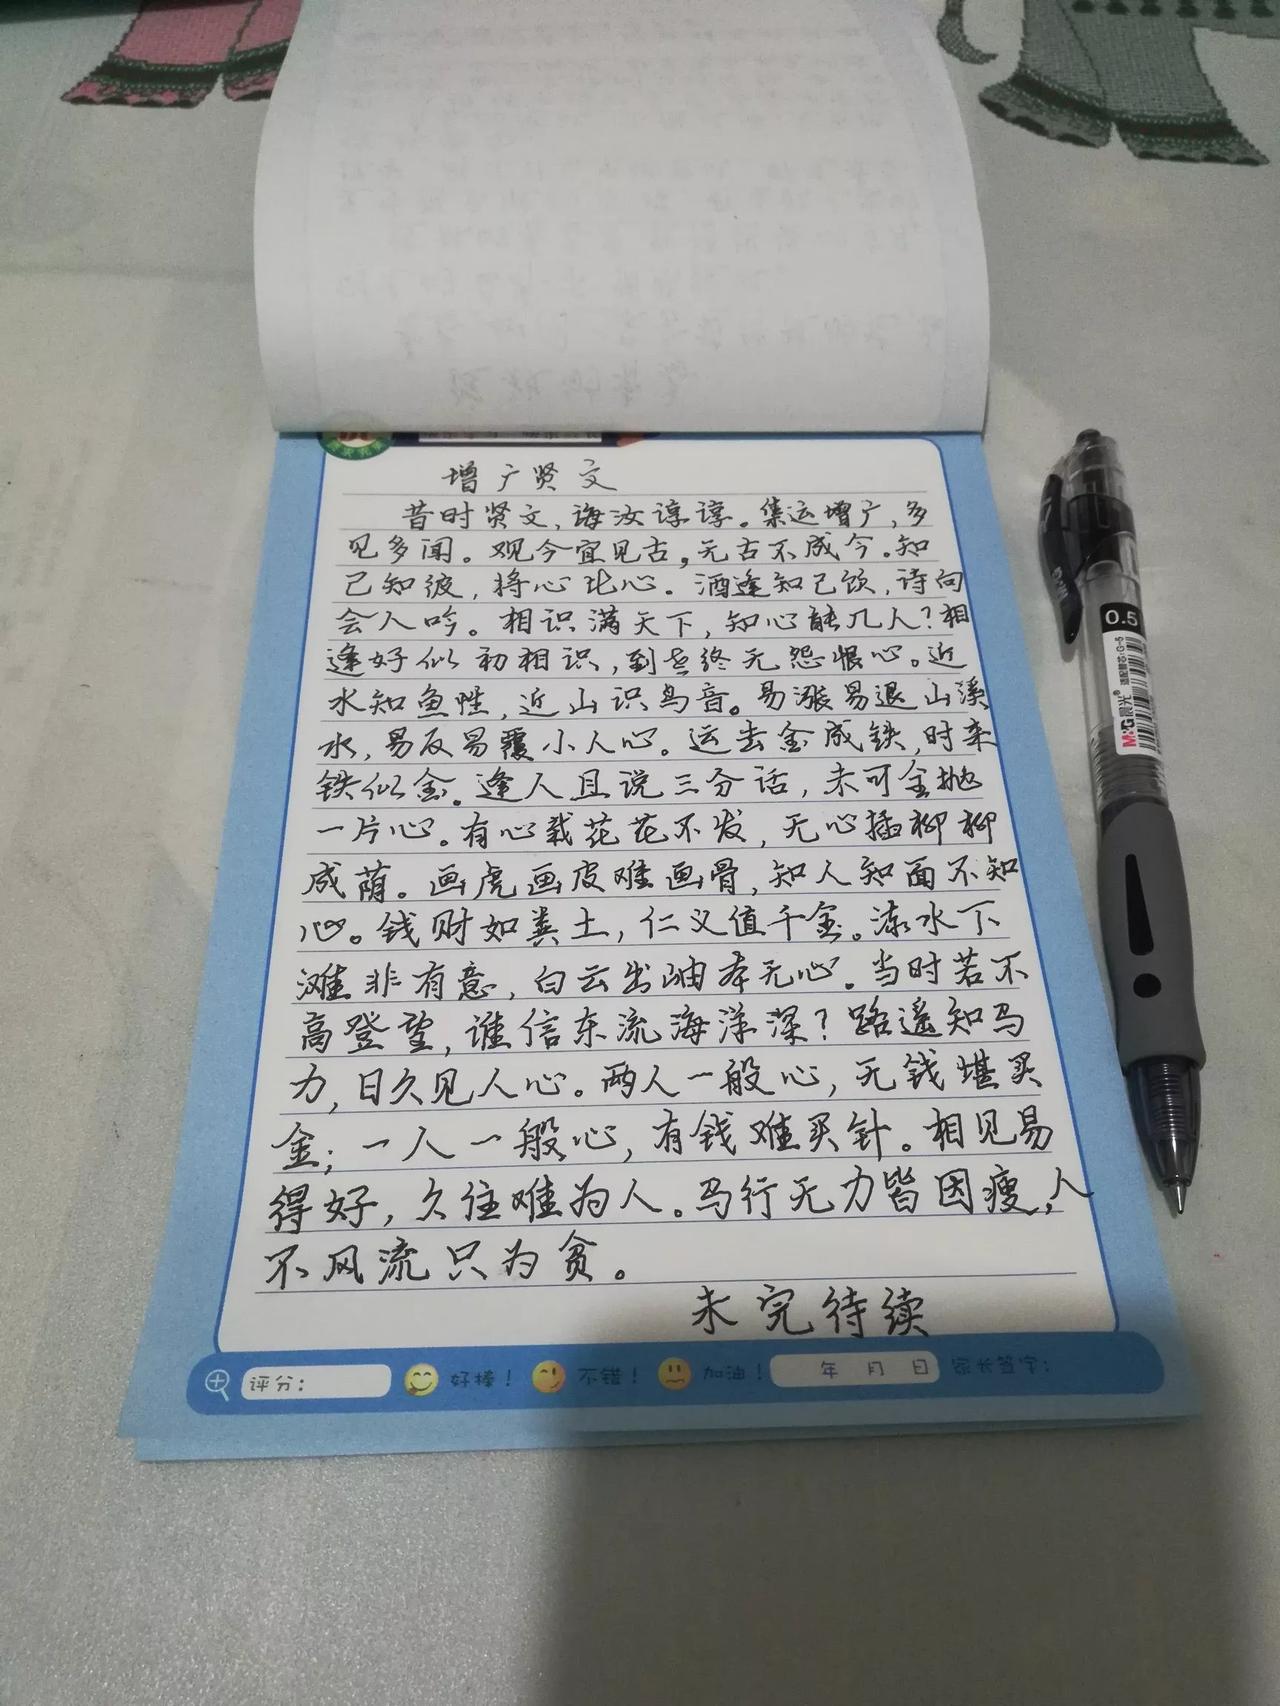 增广贤文
昔时贤文，诲汝谆谆。集运增广，多
见多闻。观今宜见古。无古不成今。知
己知彼，将心比心。酒逢知己饮，诗向
会人吟。相识满天下，知心能几人？相
逢好似初相识，到老终无怨恨心。近
水知鱼性，近山识鸟音。易涨易退山溪
水，易反易覆小人心。运去金成铁，时来
铁似金。逢人且说三分话，未可全抛
一片心。有心栽花花不发，无心插柳柳
成荫。画虎画皮难画骨，知人知面不知
心。钱财如粪土，仁义值千金。流水下
滩非有意，白云出岫本无心。当时若不
高登望，谁信东流海洋深？路遥知马
力，日久见人心。两人一般心，无钱堪买
金；一人一般心，有钱难买针。相见易
得好，久住难为人。马行无力皆因瘦，人
不风流只为贫。
未完待续
评分： 好棒！ 不错！ 加油！ 年 月 日 家长签字：
0.5
M&G 晨光®